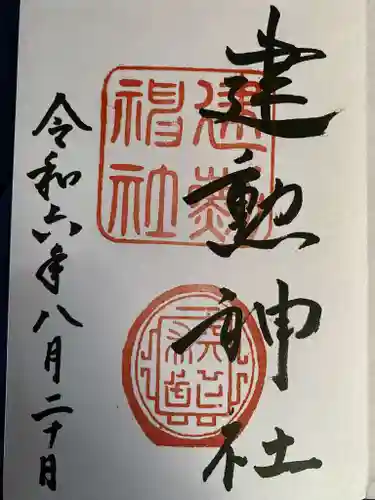 建勲神社
建勲神社
令和六年八月二十日